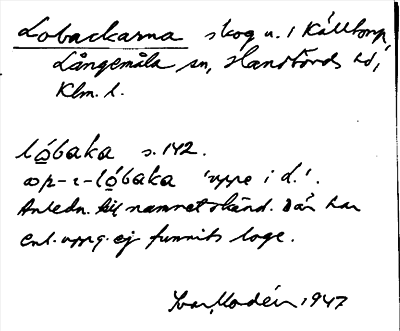 Lobackarna skog u. i Källtorp,
Långemåla sn, Handbörds hd,
Klm. l.
lǫ́baka s. 142.
op-i-lǫ́baka 'uppe i d.'.
Anledn. till namnet okänd. Där har
enl. uppg. ej funnits loge.
Ivar Modéer 1947